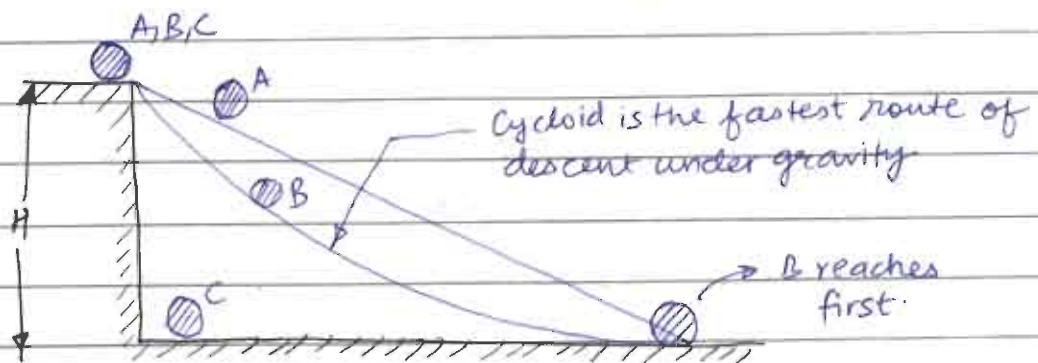 A,B,C
A
Cycloid is the fastest route of
descent under gravity
B
H
B reaches
first.
C